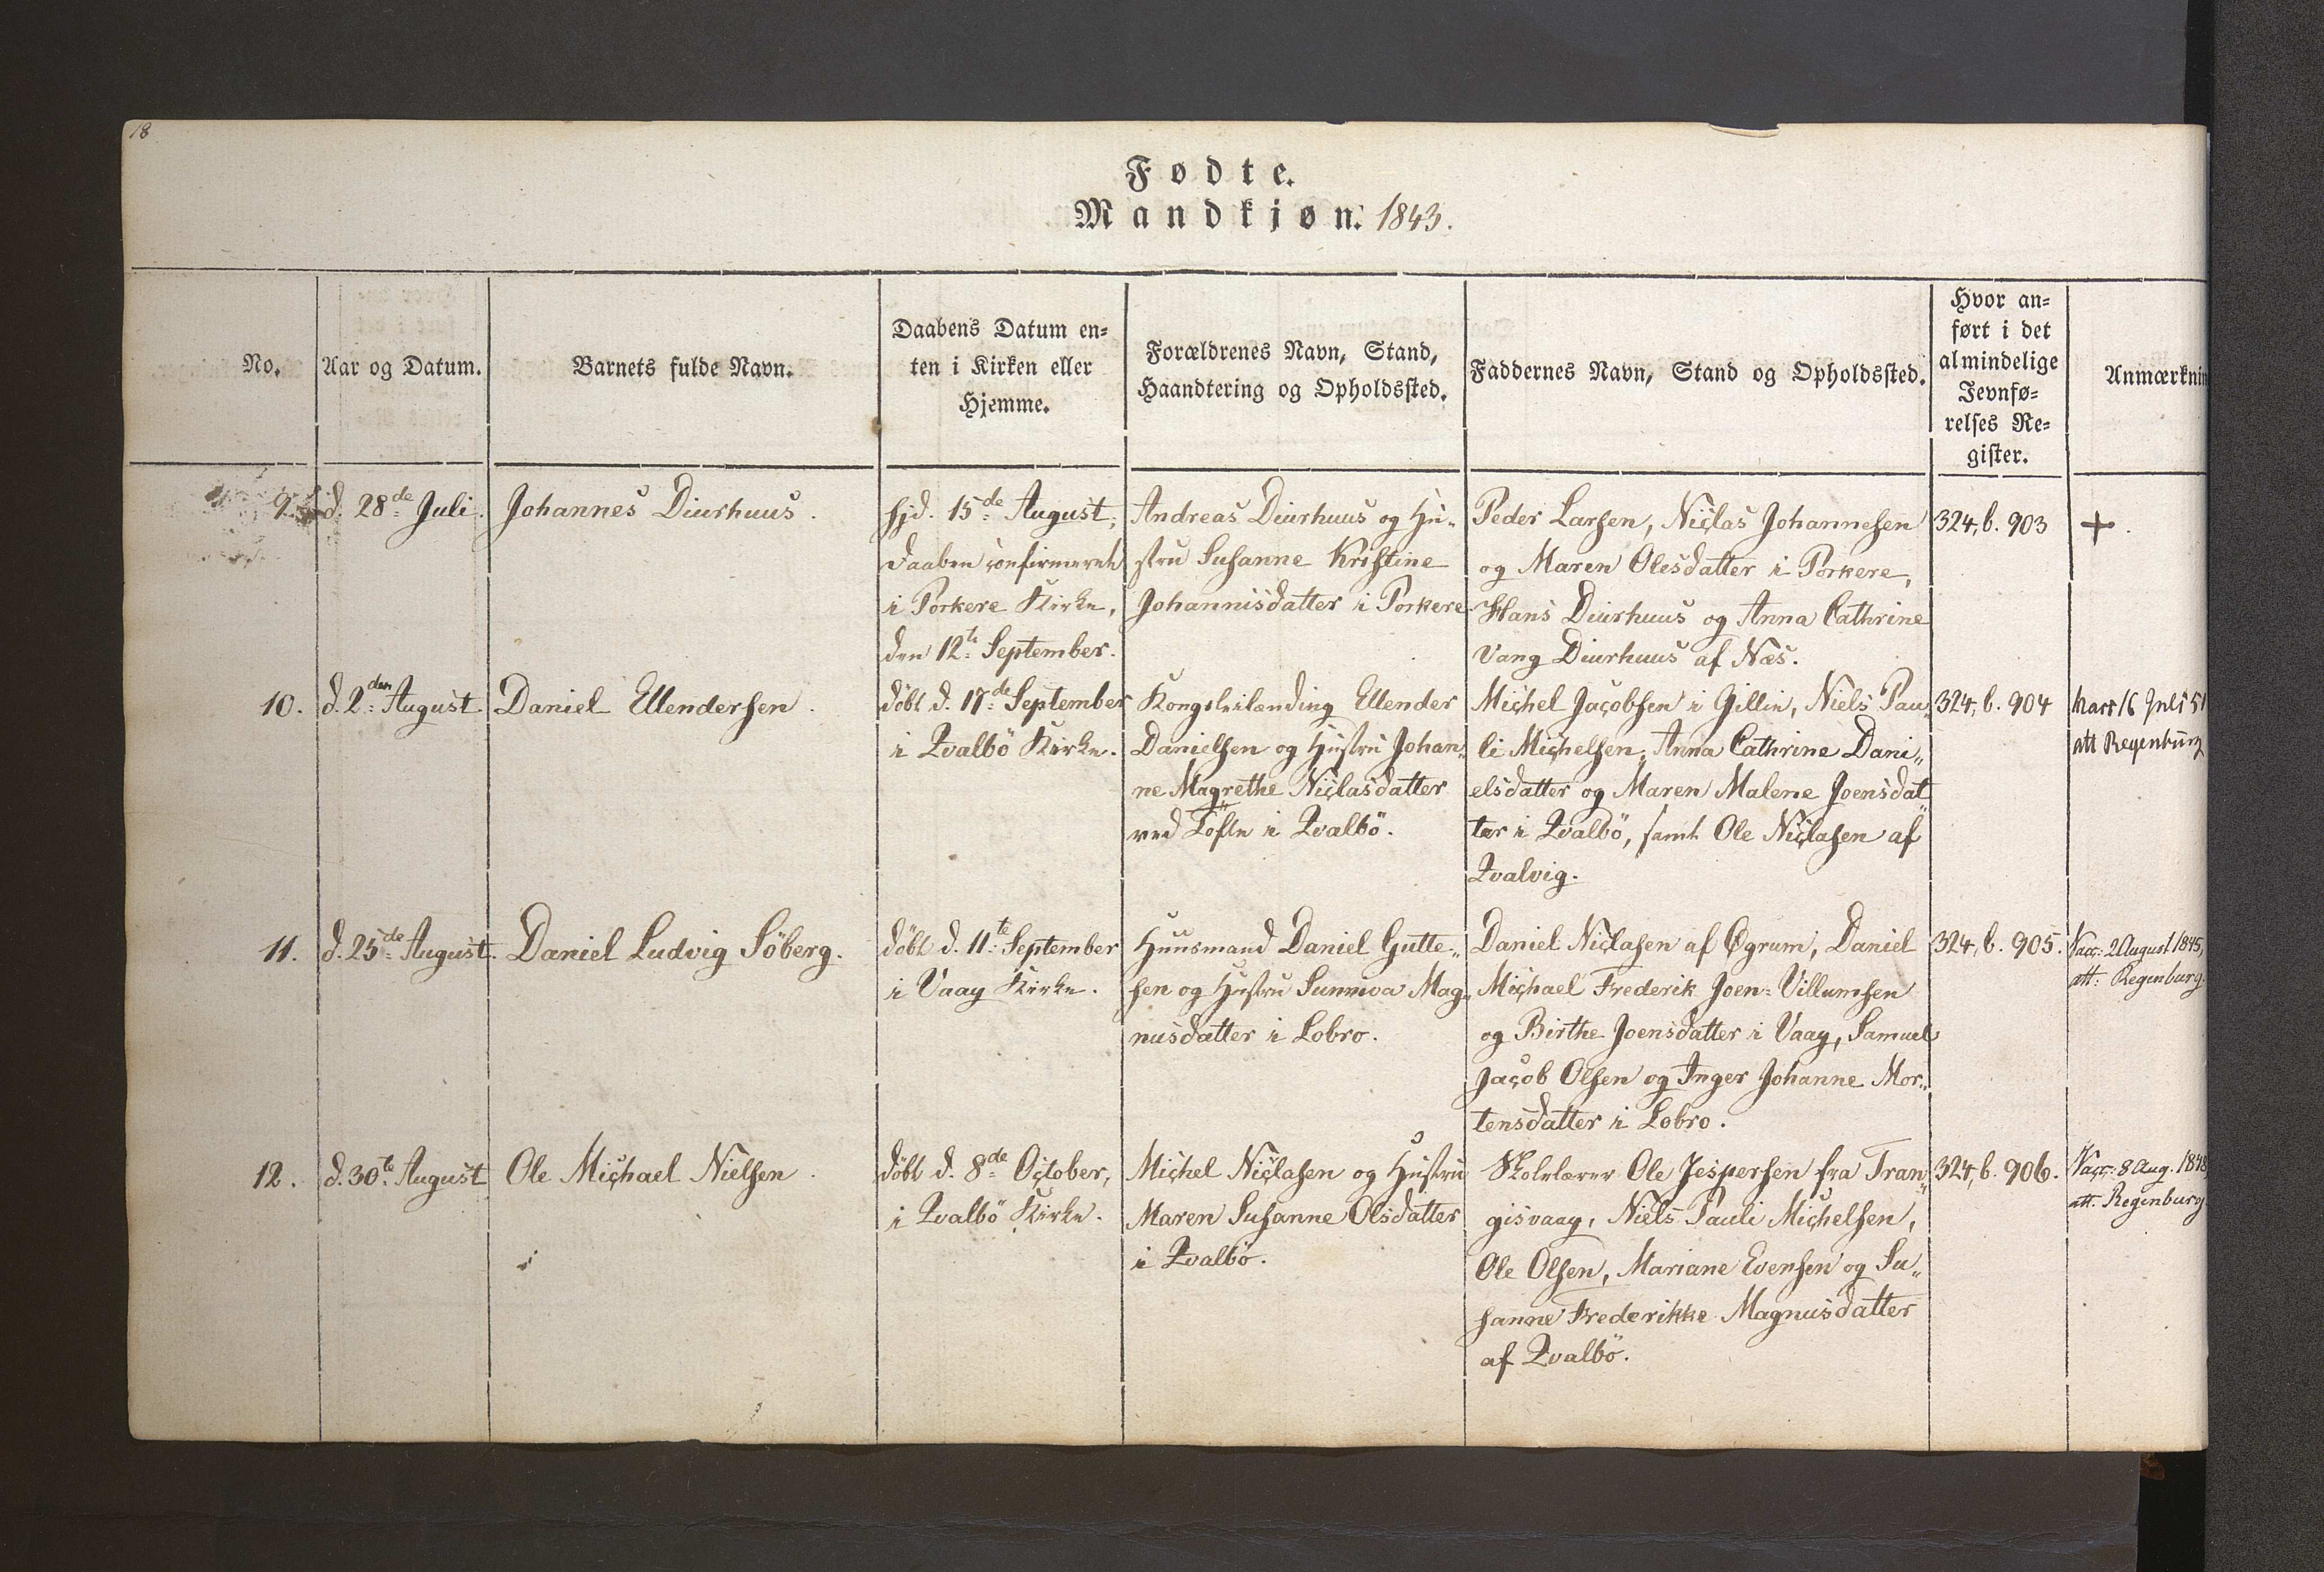 18
Fødte.
Mandkjøn. 1843.
No.
Aar og Datum.
Barnets fulde Navn.
Daabens Datum en=
ten i Kirken eller
Hjemme.
Forældrenes Navn, Stand,
Haandtering og Opholdssted.
Faddernes Navn, Stand og Opholdssted.
Hvor an=
ført i det
almindelige
Jevnfø=
relses Re=
gister.
Anmærknin
9.
d. 28de Juli.
Johannes Diurhuus.
hjd. 15de August,
daaben confirmeret
i Porkere Kirke,
den 12te September.
Andreas Diurhuus og Hu„
stru Susanne Kristine
Johannisdatter i Porkere
Peder Larsen, Niclas Johannesen
og Maren Olesdatter i Porkere,
Hans Diurhuus og Anna Cathrine
Vang Diurhuus af Næs.
324, b. 903
+.
10.
d. 2den August
Daniel Ellendersen.
döbt d. 17de September
i Qvalbö Kirke.
Kongsleilending Ellender
Danielsen og Hustru Johan„
ne Magrethe Niclasdatter
ved Tofte i Qvalbö.
Michel Jacobsen i Gillin, Niels Pau„
li Michelsen, Anna Cathrine Dani„
elsdatter og Maren Malene Joensdat„
ter i Qvalbö, samt Ole Niclasen af
Qvalvig.
324, b. 904
Vacc 16 Juli 51
att Regenburg
11.
d. 25de August.
Daniel Ludvig Söberg.
döbt d. 11te September
i Vaag Kirke.
Huusmand Daniel Gutte„
sen og Hustru Sunneva Mag„
nusdatter i Lobro.
Daniel Niclasen af Øgrum, Daniel
Michael Frederik Joen=Villumsen
og Birthe Joensdatter i Vaag, Samuel
Jacob Olsen og Inger Johanne Mor„
tensdatter i Lobro.
324, b. 905.
Vacc: 2 August 1845,
att: Regenburg.
12.
d. 30te August
Ole Michael Nielsen.
döbt d. 8de October,
i Qvalbö Kirke.
Michel Niclasen og Hustru
Maren Susanne Olsdatter
i Qvalbö.
Skolelærer Ole Jespersen fra Tran„
gisvaag, Niels Pauli Michelsen,
Ole Olsen, Mariane Evensen og Su„
sanne Frederikke Magnusdatter
af Qvalbö.
324, b. 906.
Vacc: 8 Aug. 1848,
att. Regenburg